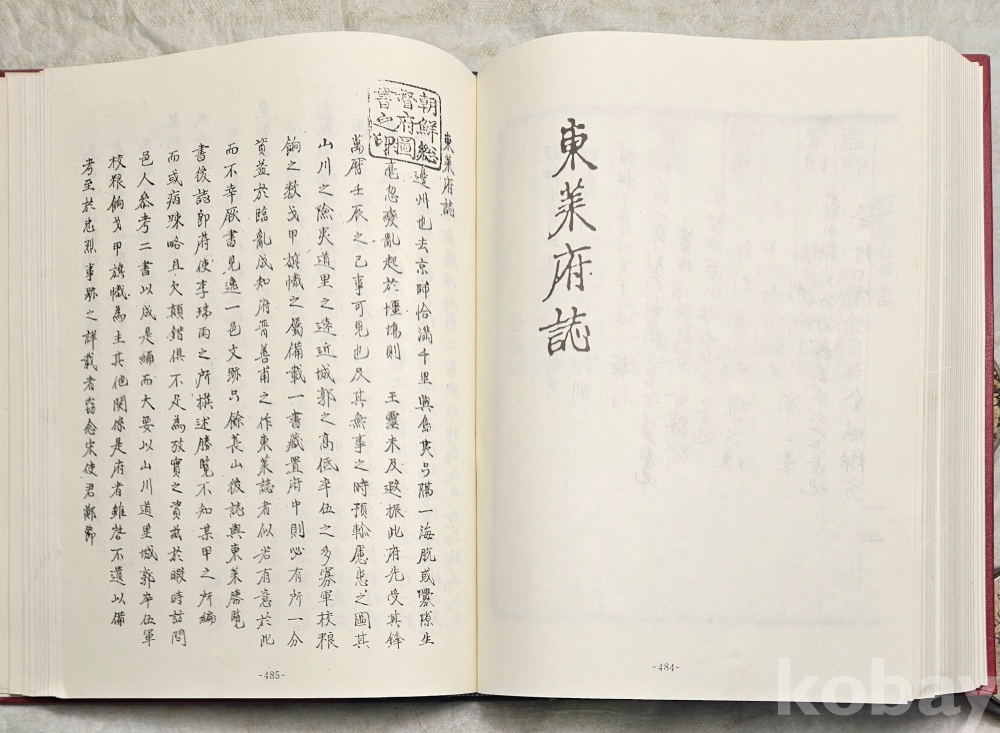 東莱府誌
-484-
朝鮮総
督府圖
書之印
東莱府誌
邊州也去京師恰滿千里與島夷只隔一海脫或釁隙生
毫忽殘亂起於壃場則 王靈未及遐振此府先受其鋒
萬曆壬辰之已事可見也及其無事之時預軫慮患之圖其
山川之險夷道里之遠近城郭之高低卒伍之多寡軍校粮
餉之数戈甲旗幟之屬備載一書藏置府中則必有所一分
資益於臨亂成知府晋善甫之作東莱誌者似若有意於此
而不幸厥書見逸一邑文跡只餘萇山後誌與東莱勝覧
書後誌即蔣使李瑞雨之所撰述勝覧不知某甲之所編
而或病踈略且欠顛錯俱不足為攷實之資玆於暇時訪問
邑人叅考二書以成是編而大要以山川道里城郭卒伍軍
校粮餉戈甲旗幟為主其他関係是府者雖 不遺以備
考至於忠烈事跡之詳載者窃念宋使君鄭節
-485-
kobay